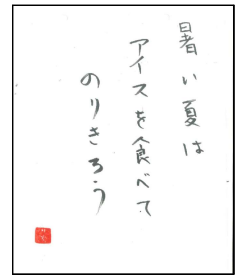 暑い夏は
アイスを食べて
のりきろう